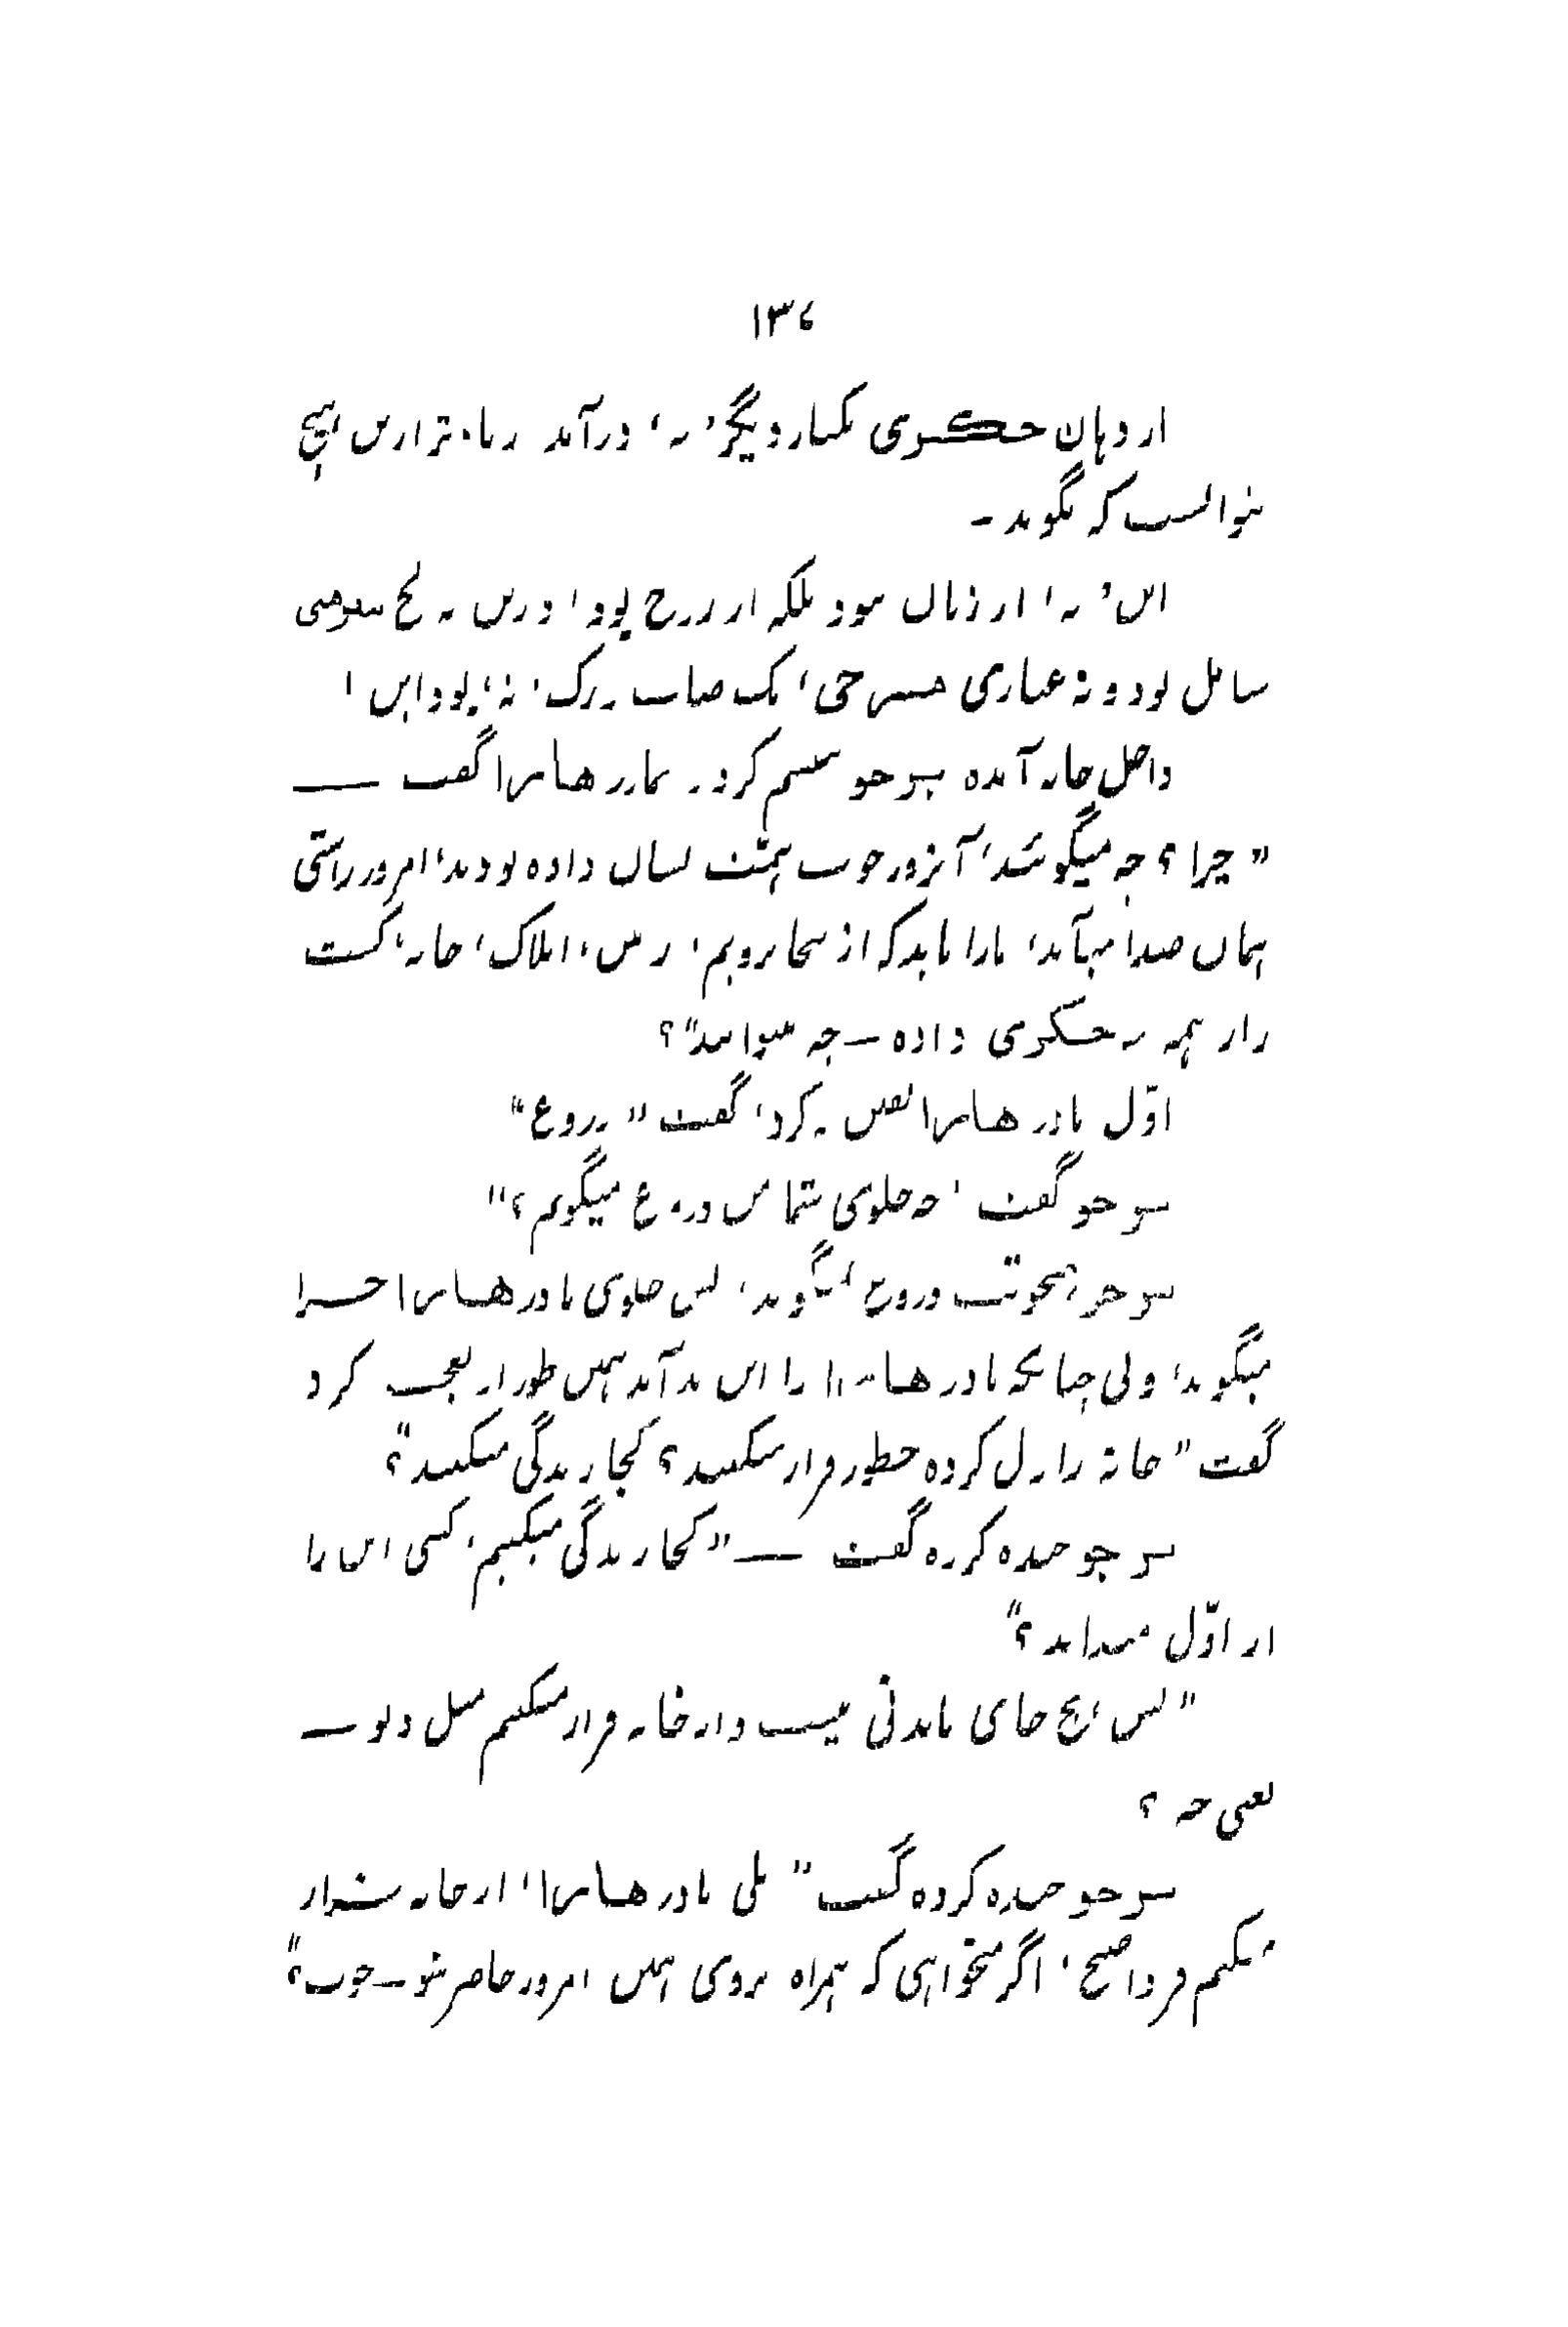 ۱۳۴
از دهان جنگوی یکبار دیگر، نه، درآمد زیاده‌تر ازین هیچ
نتوانست که بگوید -
این، نه، از زبان نبود بلکه از روح بود، درین نه لخ
شامل بود و نه عیاری، یک صاف بزرگ، نه، بود، این،
داخل خانه آمده برجو تبسم کرد. مادر هابرا گفت —
"چرا؟ چه میگوئید، آنروز خوب همت نشان داده بودند، امروز راستی
همان صدا میآید، مارا باید که از اینجا برویم، زمین، املاک، خانه، کشت
زار همه به جنگوی داده - چه میدانند"؟
اوّل مادر هابرا یقین نکرد، گفت "دروغ"
برجو گفت "چه جلوی شما من دروغ میگویم؟"
برجو دروغ میگوید، لیکن جلوی مادر هابرا چرا
میگوید، ولی چنانکه مادر هابرا را این بدآمد همین طور از تعجب کرد
گفت "خانه را ول کرده چطور فرار میکنید؟ کجا زندگی میکنید"؟
برجو خنده کرده گفت — "کجا زندگی میکنیم، کسی این را
از اوّل میداند؟"
"لیکن هیچ جای ماندنی نیست و از خانه فرار میکنیم مثل دیو —
یعنی چه؟
برجو خنده کرده گفت "بلی مادر هابرا، از خانه فرار
میکنیم فردا صبح، اگر میخواهی که همراه بروی همین امروز حاضر شو - خوب"؟